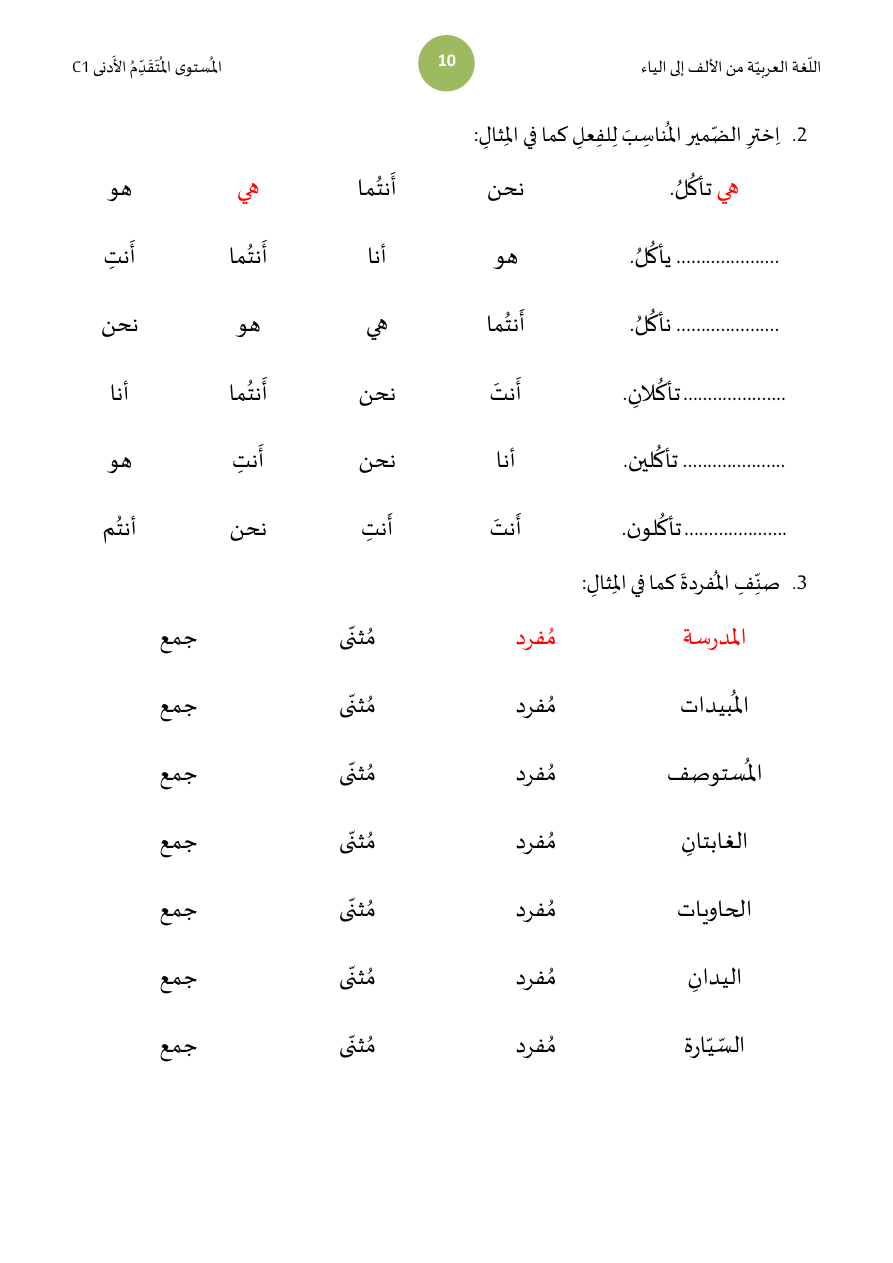 اللّغة العربيّة من الألف إلى الياء 10 المُستوى المُتَقَدِّمُ الأَدنى C1
2. اِخترِ الضّمير المُناسِبَ لِلفِعلِ كما في المِثالِ:
هي تأكُلُ. نحن أَنتُما هي هو
..................... يأكُلُ. هو أنا أَنتُما أَنتِ
..................... نأكُلُ. أَنتُما هي هو نحن
..................... تأكُلانِ. أَنتَ نحن أَنتُما أنا
..................... تأكُلين. أنا نحن أَنتِ هو
..................... تأكُلون. أَنتَ أَنتِ نحن أنتُم
3. صنِّفِ المُفردةَ كما في المِثالِ:
المدرسة مُفرد مُثنّى جمع
المُبيدات مُفرد مُثنّى جمع
المُستوصف مُفرد مُثنّى جمع
الغابتانِ مُفرد مُثنّى جمع
الحاويات مُفرد مُثنّى جمع
اليدانِ مُفرد مُثنّى جمع
السّيّارة مُفرد مُثنّى جمع